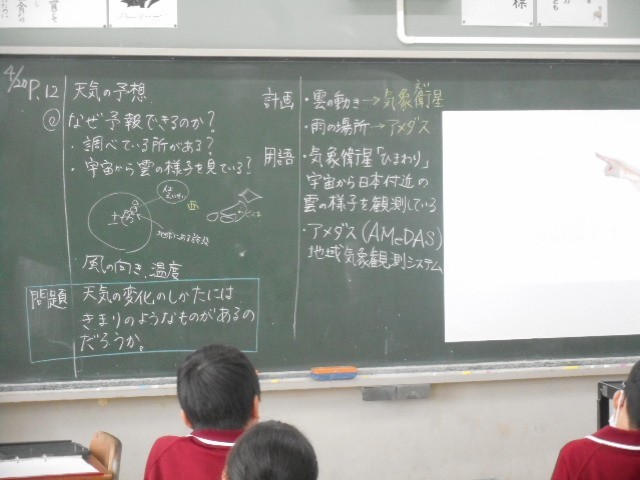 4/20 P.12
天気の予想
◎なぜ予報できるのか?
・調べている所がある?
・宇宙から雲の様子を見ている?
風の向き、温度
問題
天気の変化のしかたには
きまりのようなものがあるの
だろうか。
計画
・雲の動き→気象衛星
・雨の場所→アメダス
用語
・気象衛星「ひまわり」
宇宙から日本付近の
雲の様子を観測している
・アメダス(AMeDAS)
地域気象観測システム
様